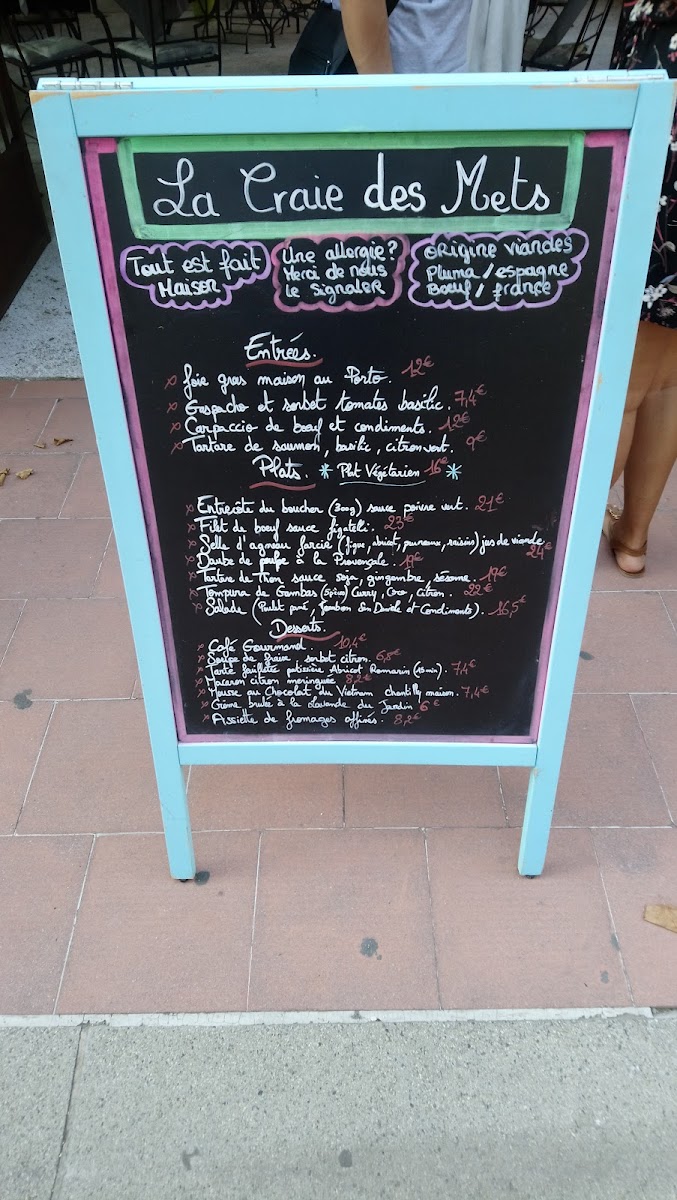 La Craie des Mets
Tout est fait
Maison
Une allergie?
Merci de nous
le signaler
Origine viandes
Pluma/espagne
Bœuf/france
Entrées.
x foie gras maison au Porto. 12€
x Gaspacho et sorbet tomates basilic. 7,4€
x Carpaccio de bœuf et condiments. 12€
x Tartare de saumon, basilic, citron vert. 9€
Plats. * Plat Végétarien 16€ *
x Entrecôte du boucher (300g) sauce poivre vert. 21€
x Filet de bœuf sauce figatelli. 23€
x Selle d'agneau farcie (figue, abricot, pruneaux, raisins) jus de viande. 24€
x Daube de poulpe à la Provençale. 19€
x Tartare de Thon sauce soja, gingembre, sésame. 19€
x Tempura de Gambas (5pièces) Curry, Coco, Citron. 22€
x Salade (Poulet pané, Jambon San Danièle et Condiments). 16,5€
Desserts.
x Café Gourmand. 10,4€
x Soupe de fraise sorbet citron. 6,8€
x Tarte feuilletée patissière Abricot Romarin (15min). 7,4€
x Macaron citron meringuée 8,2€
x Mousse au Chocolat du Vietnam chantilly maison. 7,4€
x Crème brulée à la Lavande du Jardin 6€
x Assiette de fromages affinés. 8,2€